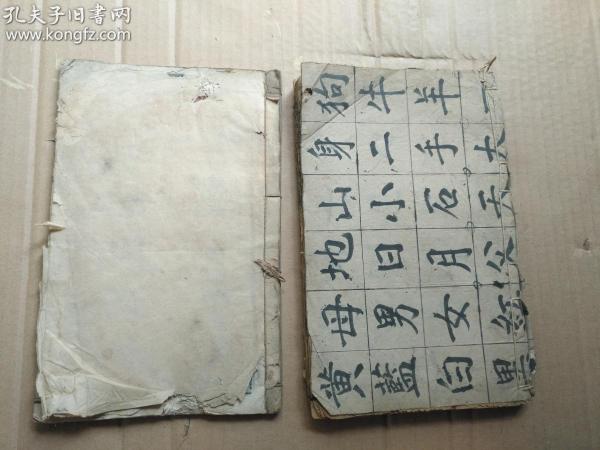 孔夫子旧书网
www.kongfz.com
一大天父紅黑
羊手石月女白
牛二小日男藍
狗身山地母黄